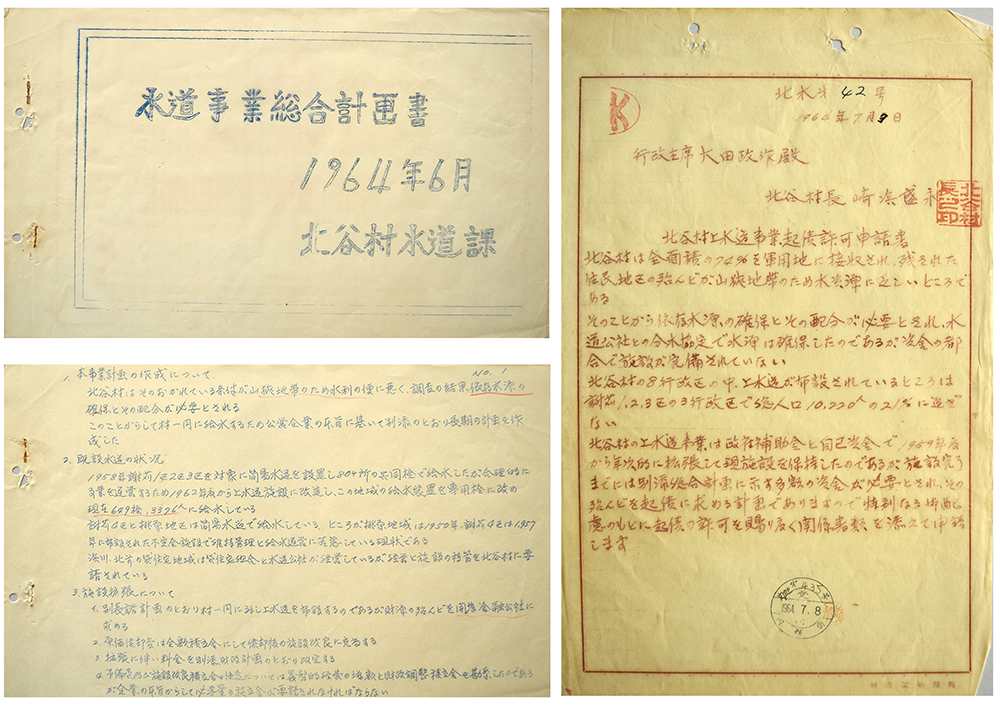 水道事業総合計画書
1964年6月
北谷村水道課
No. 1
1. 本事業計画の作成について
北谷村はそのおかれている条件が山岳地帯のため水利の便に悪く、調査の結果依存水源の
確保とその配分が必要とされる
このことからして村一円に給水するため公営企業の本旨に基いて別添のとおり長期の計画を作
成した
2. 既設水道の状況
1958年謝苅1区2区3区を対象に簡易水道を設置し
の共同栓で給水したが合理的に
事業を運営するため1962年度から上水道施設に改造し、この地域の給水装置を専用栓に改め
現在649栓、3326人に給水している
謝苅4区と桃原地区は簡易水道で給水している。ところが桃原地域は1950年、謝苅4区は1957
年に布設された不完全施設で維持管理と給水運営に苦慮している現状である
北前の貸住宅地域は貸住宅組合と水道公社が経営しているが経営と施設の移管を北谷村に要
請されている
3. 施設拡張について
1. 別表総計画のとおり村一円に対し上水道を布設するのであるが財源の殆んどを開発金融公社に
求める
2. 償却費は全額積立金にして償却後の施設改良に充当する
3. 拡張に伴い料金を別添財政計画のとおり改定する
4. 予備費及び施設改良積立金の
については
経営の
と財政調整積立金を勘案したのであ
が企業の本旨からして必要の積立金が要請されなければならない
K
北水才42号
1964年7月9日
行政主席大田政作殿
北谷村長 崎浜盛永
北谷村長之印
北谷村上水道事業起債許可申請書
北谷村は全面積の74%を軍用地に接収され、残された
住民地区の殆んどが山岳地帯のため水資源に乏しいところで
ある
そのことから依存水源の確保とその配分が必要とされ、水
道公社との分水協定で水源は確保したのであるが資金の都
合で施設が完備されていない
北谷村の8行政区の中、上水道が布設されているところは
謝苅1、2、3区の3行政区で総人口10,220人の21%に過ぎ
ない
北谷村の上水道事業は政府補助金と自己資金で1959年度
から年次的に拡張して現施設を保持したのであるが施設完了
までには別添総合計画に示す多額の資金が必要とされ、その
殆んどを起債に求める計画でありますので特別なる御配
慮のもとに起債の許可を賜り度く関係書類を添えて申請
します
1964.7.8